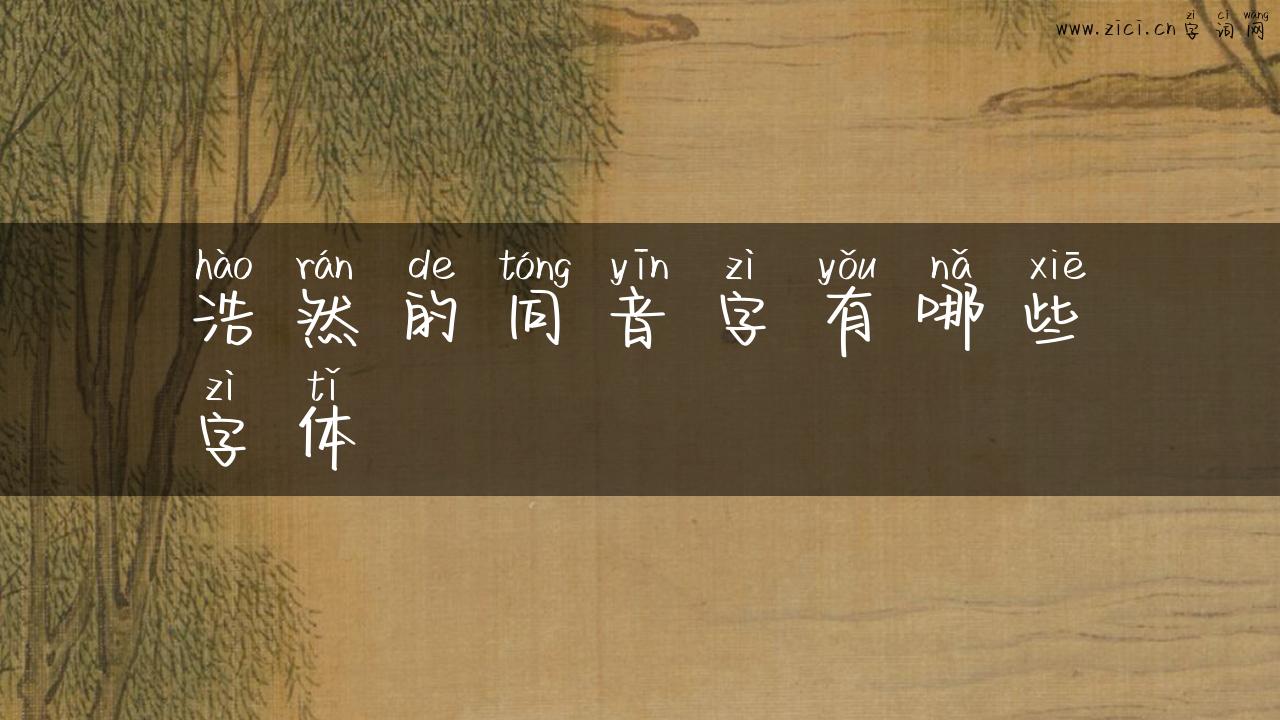 zì cí wǎng
www.zici.cn字词网
hào rán de tóng yīn zì yǒu nǎ xiē
浩然的同音字有哪些
zì tǐ
字体